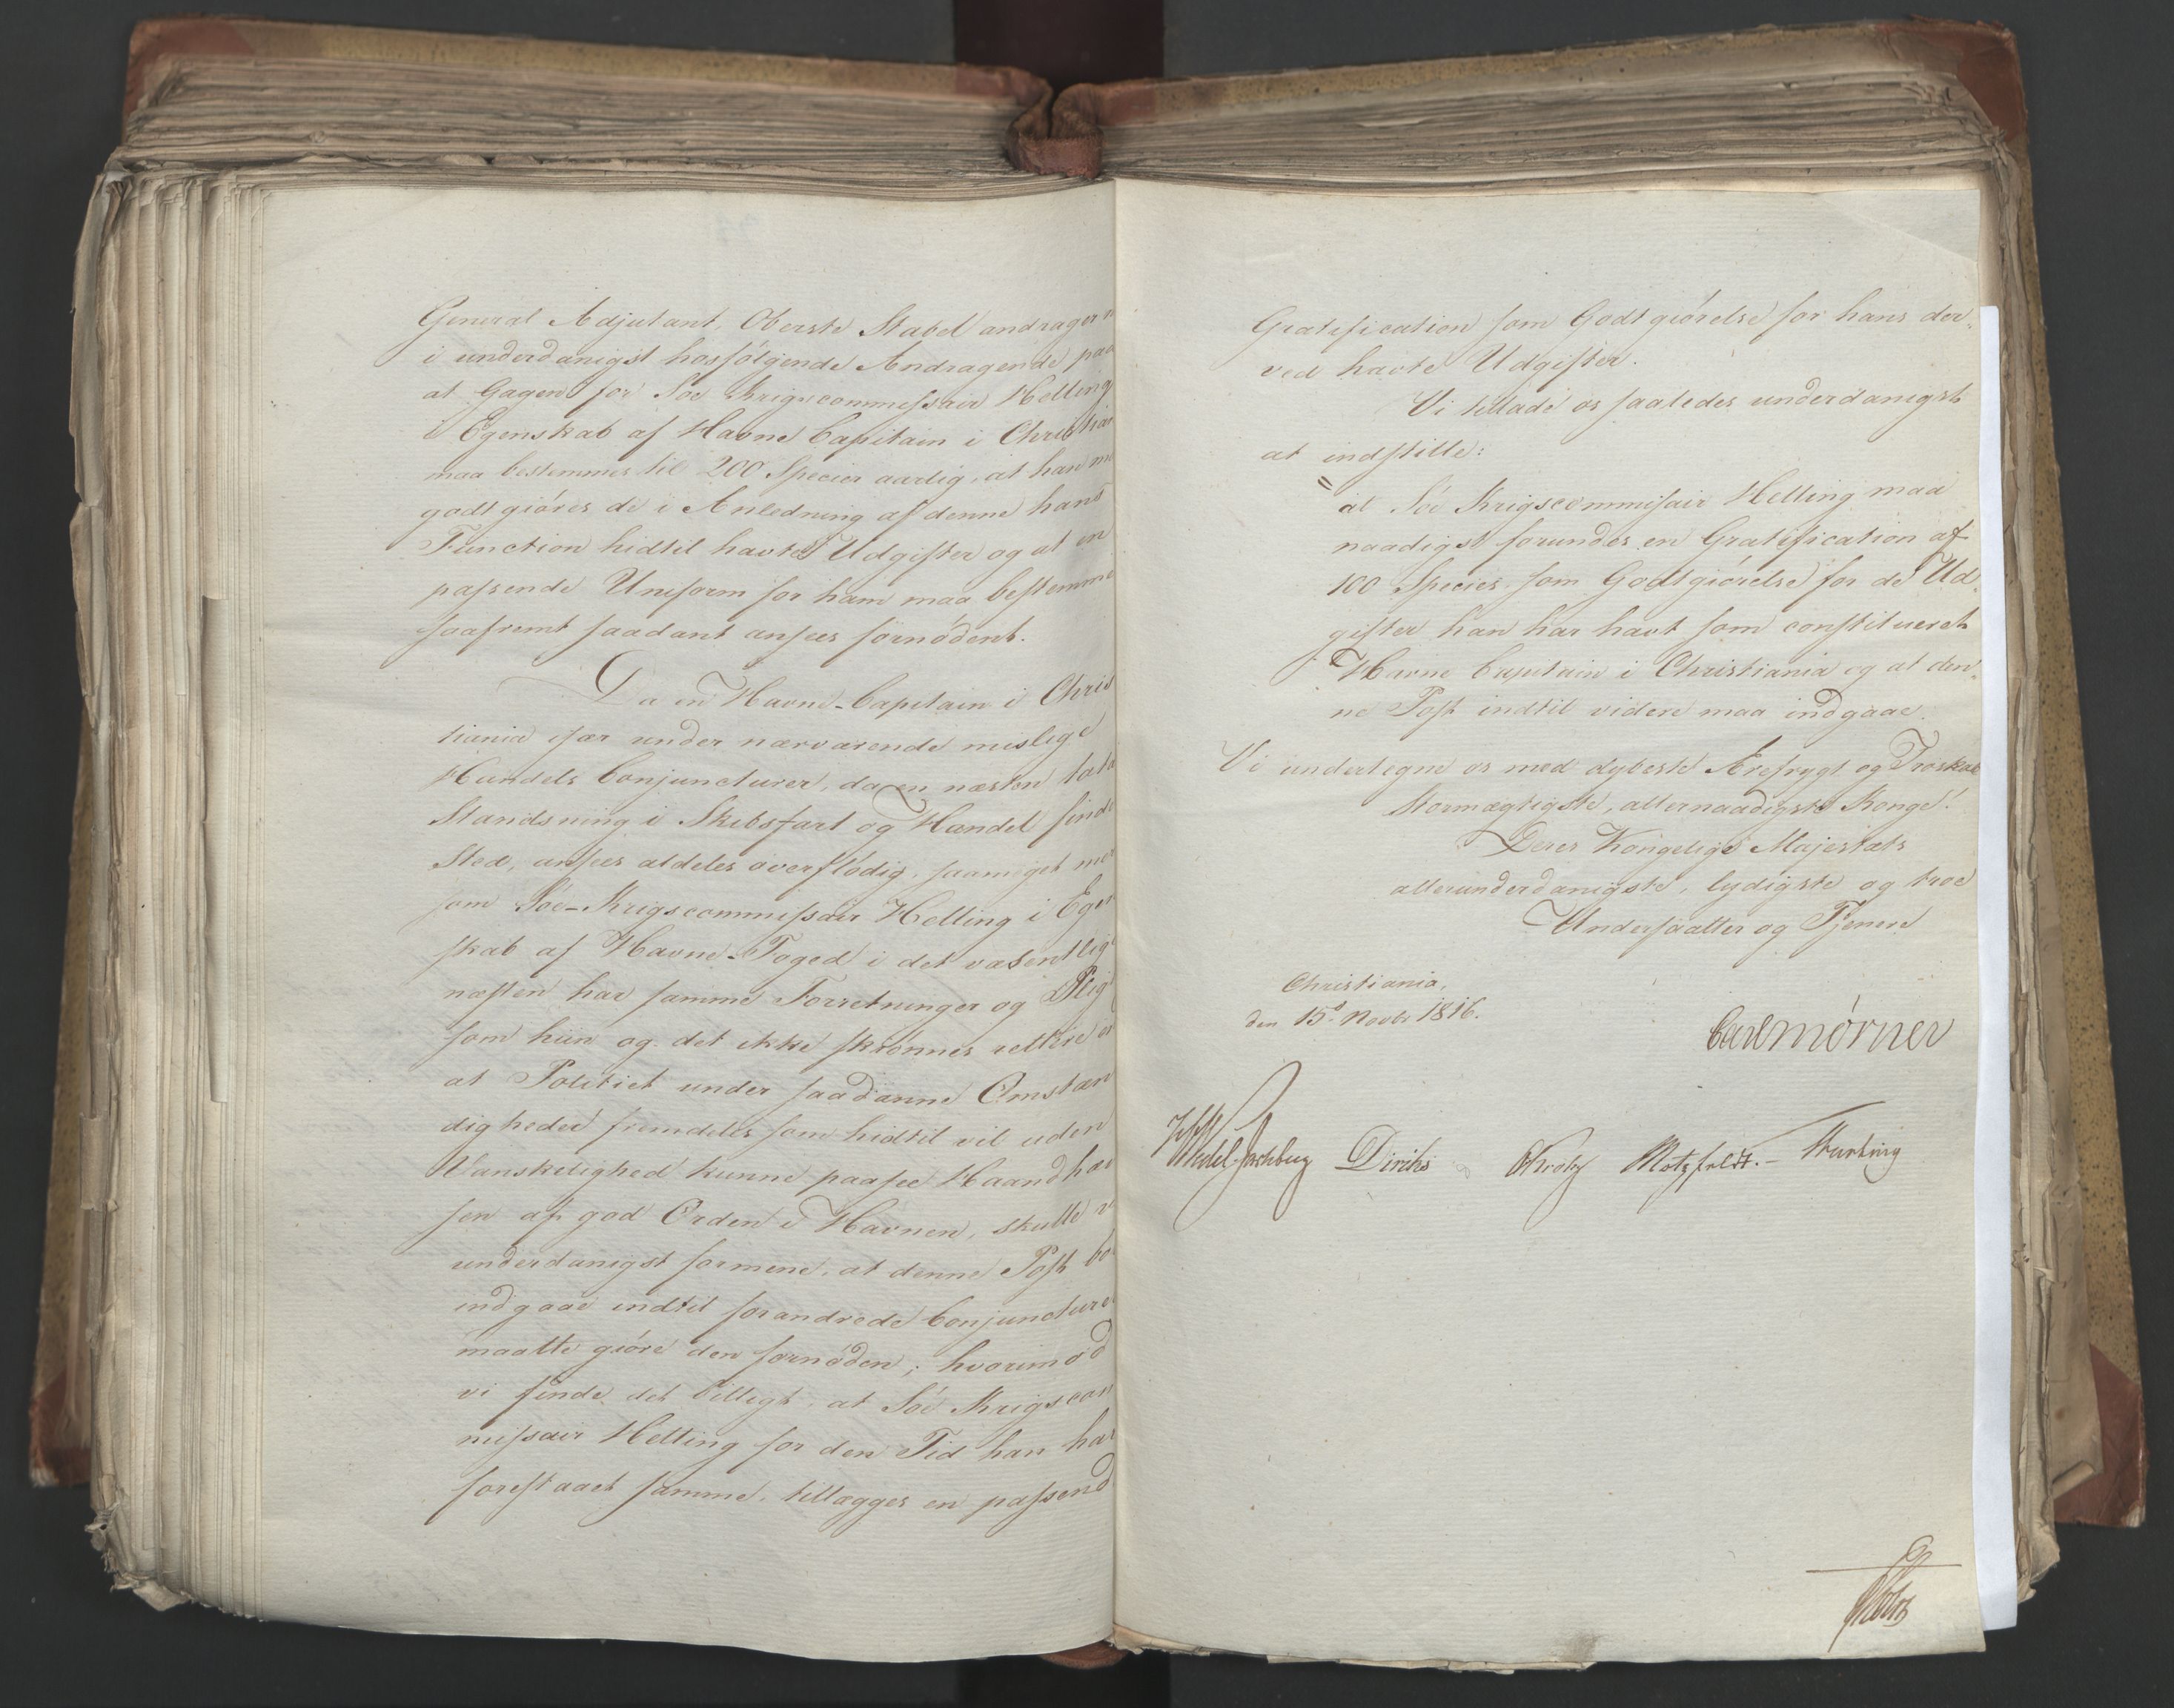 General Adjutant, Oberste Stabel andrager
i underdanigst hosfølgende Andragende paa
at Gagen for Søe Krigscommissair Helting
i Egenskab af Havne Capitain i Christian
maa bestemmes til 200 Species aarlig, at han m
godtgiøres de i Anledning af denne hans
Function hidtil havte Udgifter og at en
passende Uniform for ham maa bestemme
saafremt saadant ansees fornødent.
Da en Havne-Capitain i Chris
tiania især under nærværende mislige
Handels Conjuncturer, da en næsten tota
Standsning i Skibsfart og Handel finde
Sted, ansees aldeles overflødig, saameget mer
som Søe-Krigscommissair Helting i Egen
skab af Havne-Foged i det væsentlig
næsten har samme Forretninger og Plig
som hiin og det ikke skiønnes rettere
at Politiet under saadanne Omstæn
digheder fremdeles som hidtil vil uden
Vanskelighed kunne paasee Haandhæv
sen af god Orden i Havnen, skulle v
underdanigst formene, at denne Post bø
indgaae indtil forandrede Conjuncture
maatte giøre den fornøden; hvorimod
vi finde det billigt, at Søe Krigscom
missair Helting for den Tid han har
forestaaet samme, tillægges en passend
Gratification som Godtgiørelse for hans der-
ved havte Udgifter.
Vi tillade os saaledes underdanigst
at indstille:
"at Søe Krigscommissair Helting maa
naadigst forundes en Gratification af
100 Species som Godtgiørelse for de Ud-
gifter han har havt som constitueret
Havne Capitain i Christiania og at den-
ne Post indtil videre maa indgaae.
Vi undertegne os med dybeste Ærefrygt og Troskab
Stormægtigste, allernaadigste Konge!
Deres Kongelige Majestæts
allerunderdanigste, lydigste og troe
Undersaatter og Tjenere
Christiania,
den 15d Novbr 1816.
Carl Mörner
Wedel-Jarlsberg Diriks Krog Motzfeldt.- Hartvig